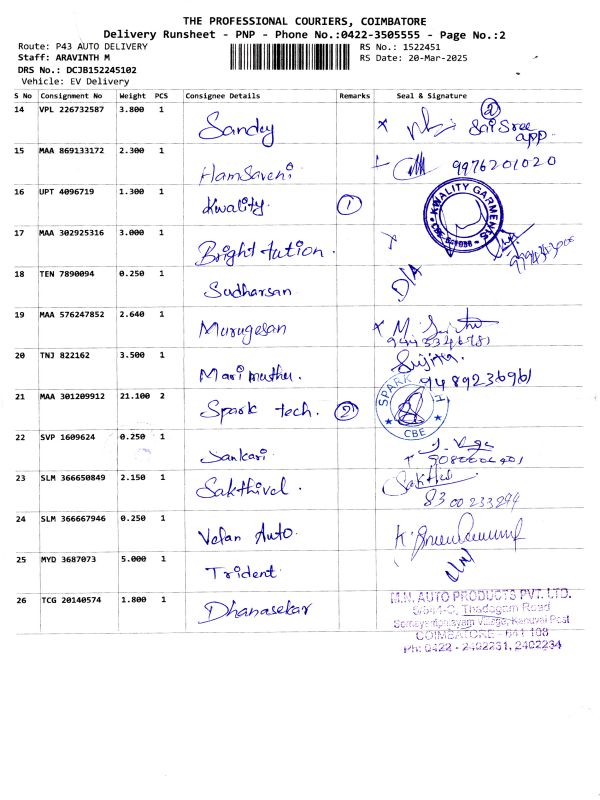 THE PROFESSIONAL COURIERS, COIMBATORE
Delivery Runsheet - PNP - Phone No.:0422-3505555 - Page No.:2
Route: P43 AUTO DELIVERY RS No.: 1522451
Staff: ARAVINTH M RS Date: 20-Mar-2025
DRS No.: DCJB152245102
Vehicle: EV Delivery
S No Consignment No Weight PCS Consignee Details Remarks Seal & Signature
14 VPL 226732587 3.800 1 Sandy 2 Sai Sree app.
15 MAA 869133172 2.300 1 Hamsaveni 9976201020
16 UPT 4096719 1.300 1 Kwality. 1 KWALITY GARMENTS
17 MAA 302925316 3.000 1 Bright tution.
18 TEN 7890094 0.250 1 Sudharsan D/A
19 MAA 576247852 2.640 1 Murugesan
20 TNJ 822162 3.500 1 Mari muthu. Sujitha.
21 MAA 301209912 21.100 2 Spark tech. 2 SPARK CBE 9489236961
22 SVP 1609624 0.250 1 Sankari
23 SLM 366650849 2.150 1 Sakthivel. 8300233294
24 SLM 366667946 0.250 1 Velan Auto.
25 MYD 3687073 5.000 1 Trident.
26 TCG 20140574 1.800 1 Dhanasekar
M.N. AUTO PRODUCTS PVT. LTD.
Thadagam Road
Village, Kanuvai Post
COIMBATORE - 641 108
Ph: 0422 - 2402231, 2402234